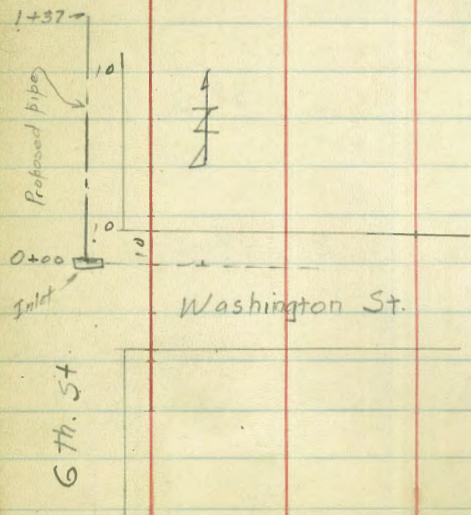 1+37
10
Proposed pipe
10
10
0+00
Inlet
Washington St.
6th. St.